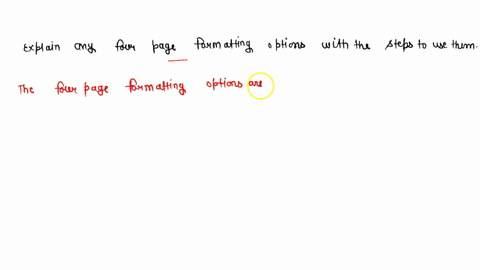 Explain any four page formatting options with the steps to use them.
The four page formatting options are